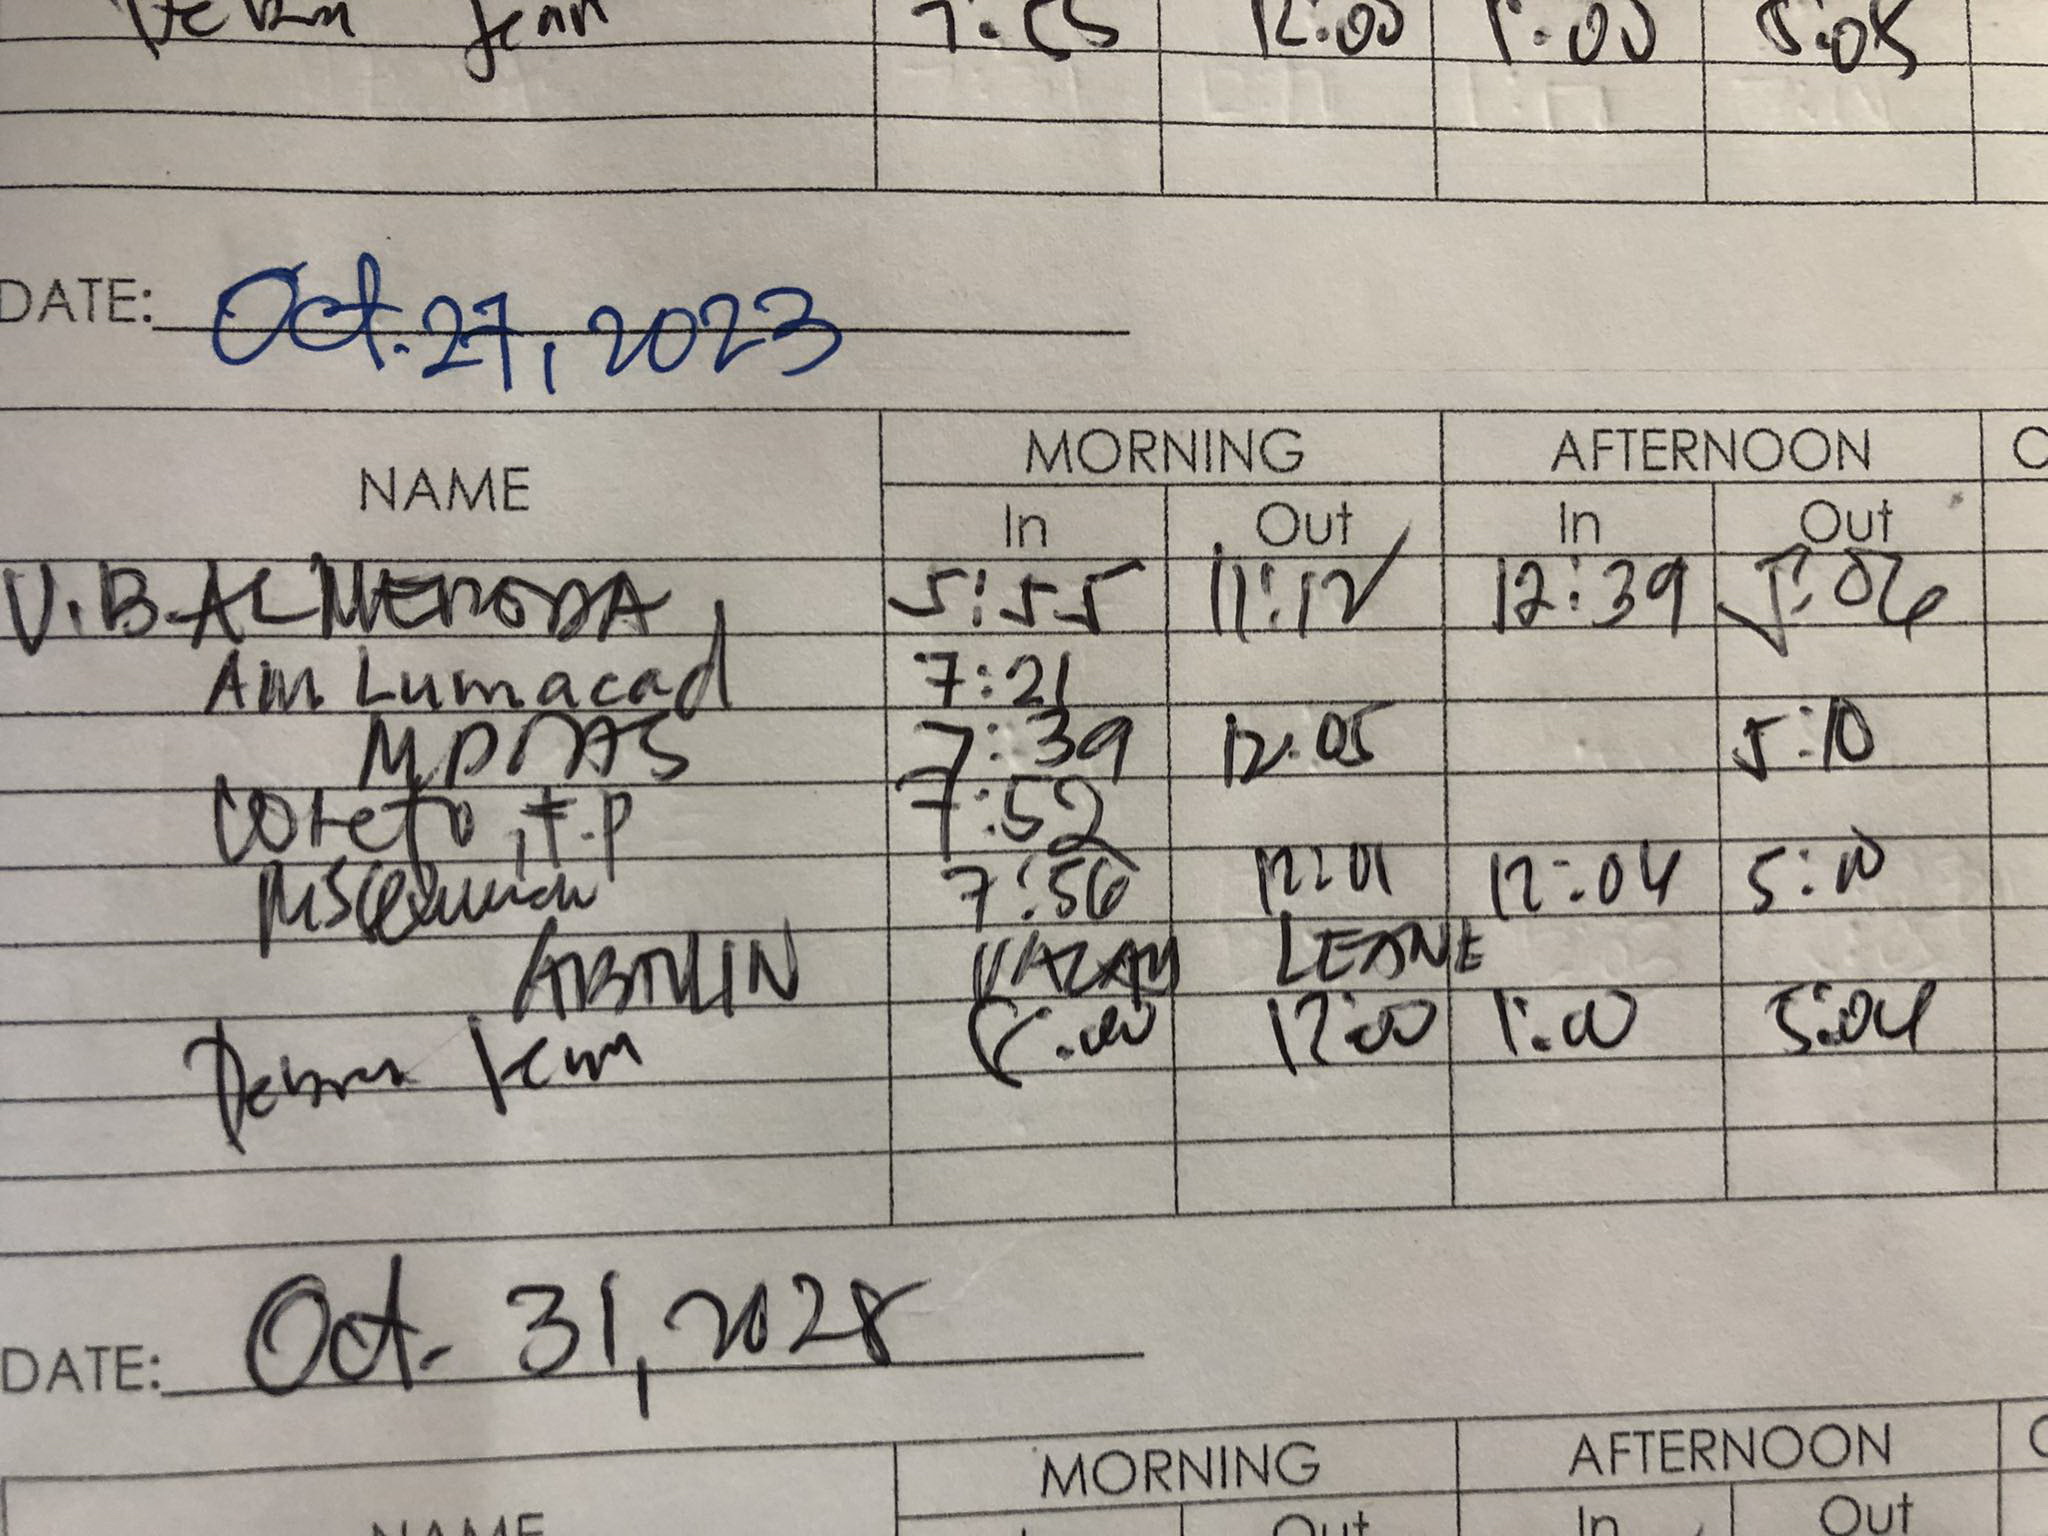 Debra Jean 7:55 12:00 1:00 5:05
DATE: Oct. 27, 2023
NAME MORNING AFTERNOON
In Out In Out
V.B. ALMERODA 5:55 11:12 12:39 5:06
Am Lumacad 7:21
7:39 12:05 5:10
Loreto, F.P 7:52
7:56 12:01 12:04 5:00
ABALLIN LEAVE
Debra Jean 8:00 12:00 1:00 5:04
DATE: Oct. 31, 2023
MORNING AFTERNOON
NAME In Out In Out